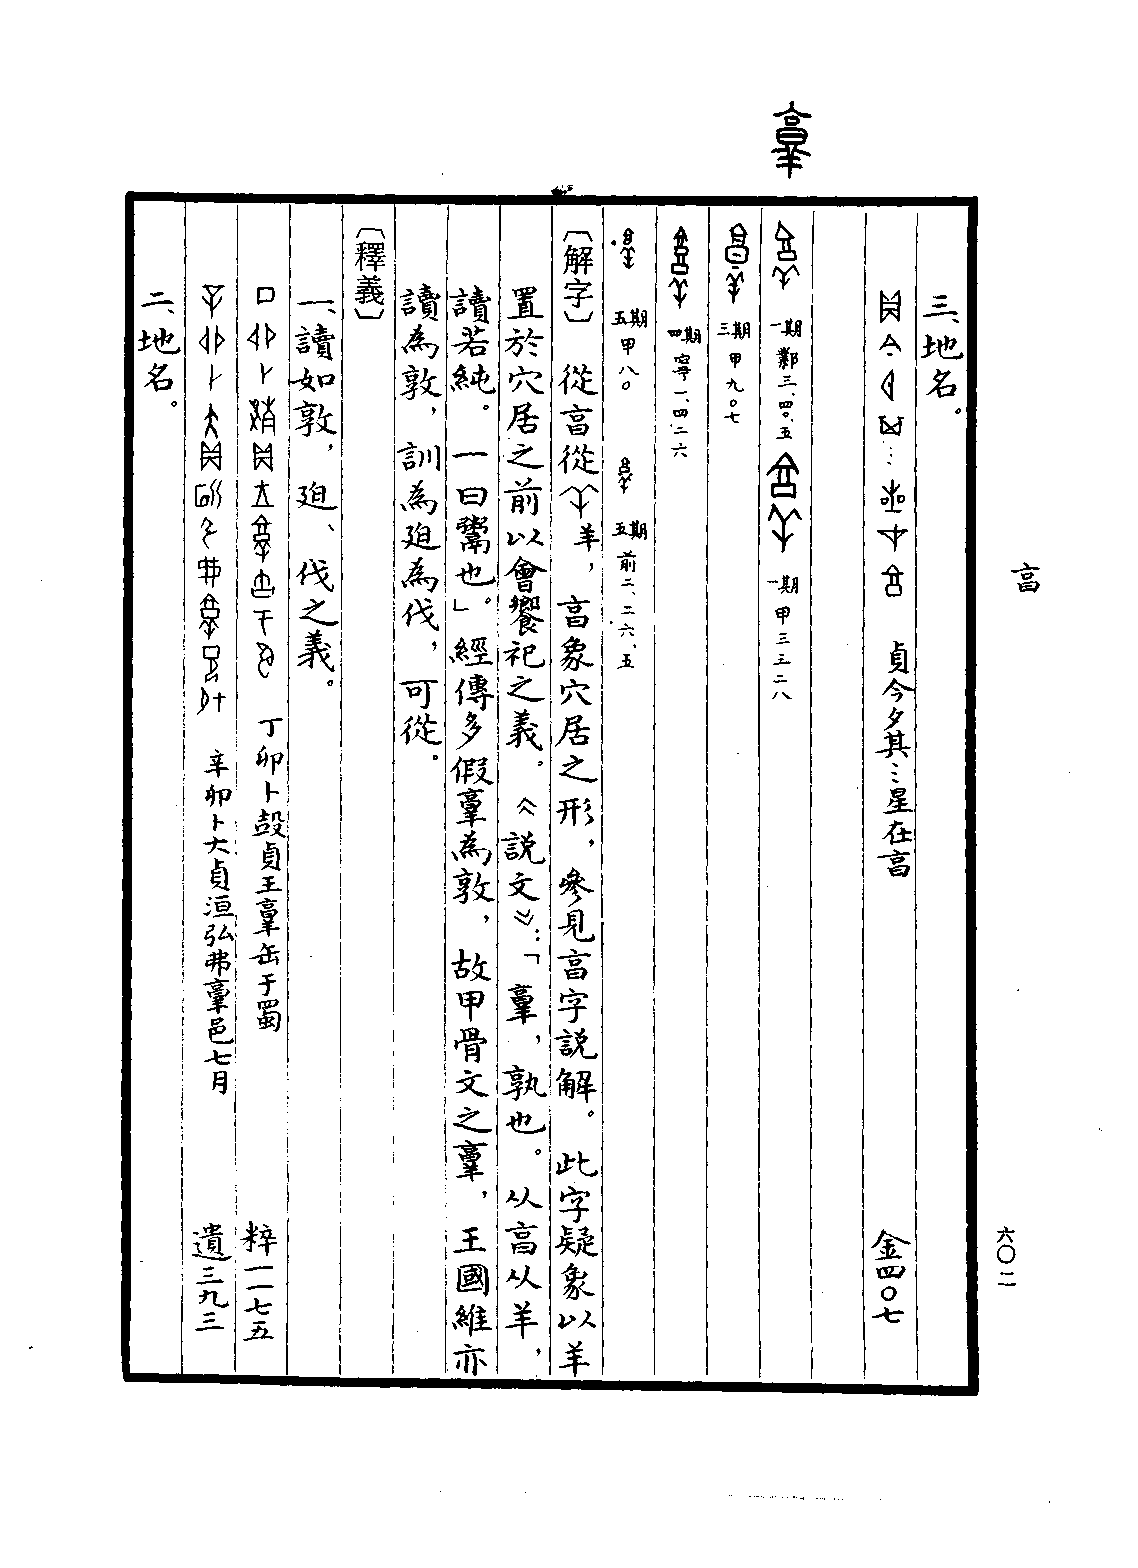 亯
六〇二
𦎫
三、地名。
貞今夕其…星在亯 金四〇七
一期 鄴三、四〇、五 一期 甲三三二八
三期 甲九〇七
四期 寧一、四二六
五期 甲八〇 五期 前二、二六、五
〔解字〕 從亯從羊，亯象穴居之形，參見亯字説解。此字疑象以羊
置於穴居之前以會饗祀之義。《説文》：「𦎫，孰也。从亯从羊，
讀若純。一曰鬻也。」經傳多假𦎫為敦，故甲骨文之𦎫，王國維亦
讀為敦，訓為廹為伐，可從。
〔釋義〕
一、讀如敦，廹、伐之義。
丁卯卜㱿貞王𦎫缶于蜀 粹一一七五
辛卯卜大貞洹弘弗𦎫邑七月 遺三九三
二、地名。